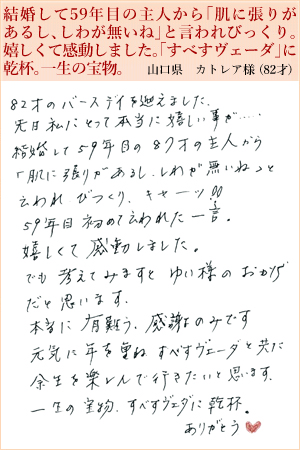 結婚して59年目の主人から「肌に張りが
あるし、しわが無いね」と言われびっくり。
嬉しくて感動しました。「すべすヴェーダ」に
乾杯。一生の宝物。　山口県　カトレア様（82才）
82才のバースデイを迎えました。
先日私にとって本当に嬉しい事が……
結婚して59年目の87才の主人から
「肌に張りがあるし、しわが無いね」と
云われ びっくり、キャーッ!!
59年目初めて云われた一言。
嬉しくて感動しました。
でも考えてみますと ゆい様のおかげ
だと思います。
本当に有難う、感謝のみです
元気に年を重ね すべすヴェーダと共に
余生を楽しんで行きたいと思います。
一生の宝物、すべすヴェダに乾杯。
ありがとう